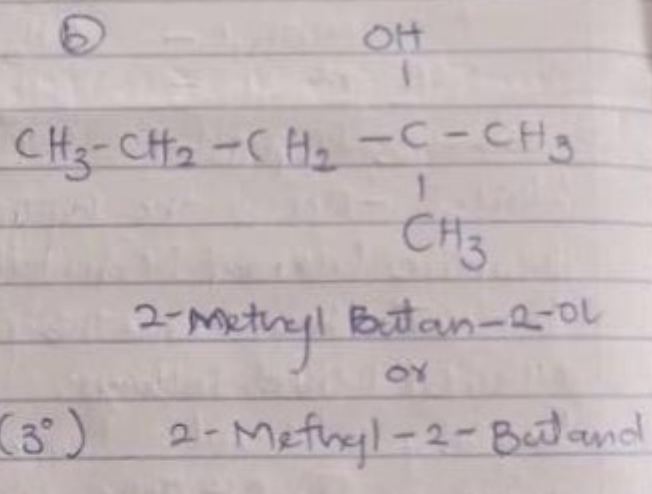 ⑥ OH
CH3-CH2-CH2-C-CH3
CH3
2-Methyl Butan-2-OL
or
(3°) 2-Methyl-2-Butanol